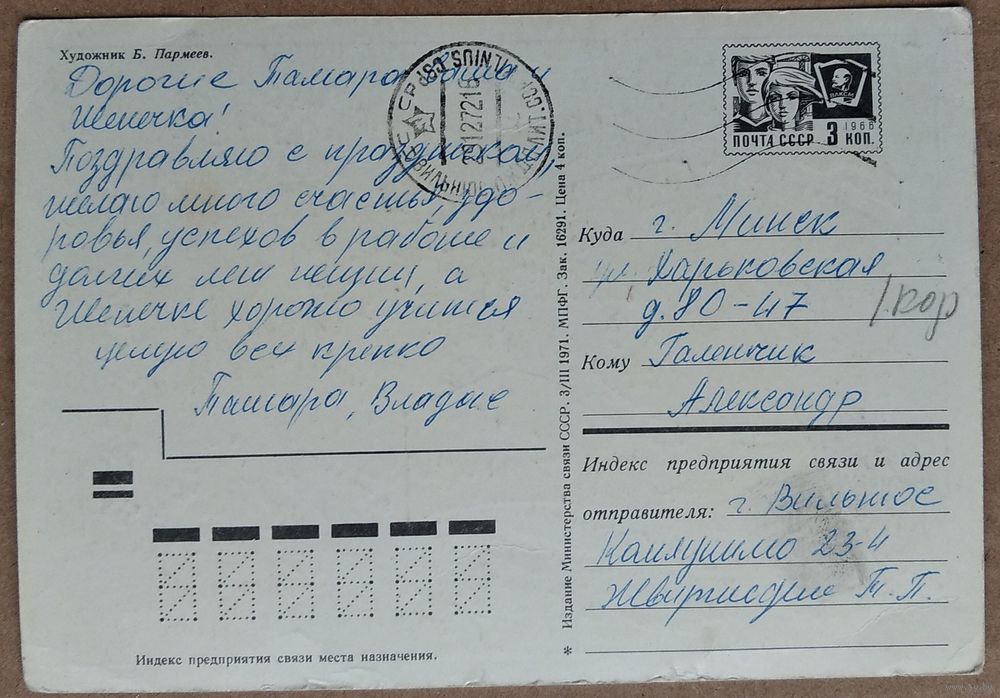 Художник Б. Пармеев.
Дорогие Тамара, Саша и
Женечка!
Поздравляю с праздником,
желаю много счастья, здо-
ровья, успехов в работе и
долгих лет жизни, а
Женечке хорошо учиться
целую всех крепко
Тамара, Владас
VILNIUS
291272 16
ВЛКСМ
1966
ПОЧТА СССР 3 КОП.
Издание Министерства связи СССР. 3/III 1971. МПФГ. Зак. 16291. Цена 4 коп.
Куда г. Минск
ул. Харьковская
д. 80-47
/кор
Кому Галенчик
Александр
Индекс предприятия связи и адрес
отправителя: г. Вильнюс
23-4
Т. П.
*
Индекс предприятия связи места назначения.